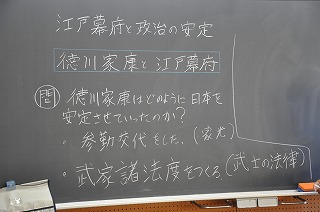 江戸幕府と政治の安定
徳川家康と江戸幕府
問 徳川家康はどのように日本を
安定させていったのか?
・参勤交代をした。(家光)
・武家諸法度をつくる(武士の法律)